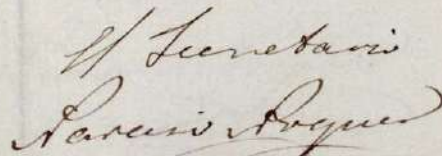 El Secretario
Narciso Roquer